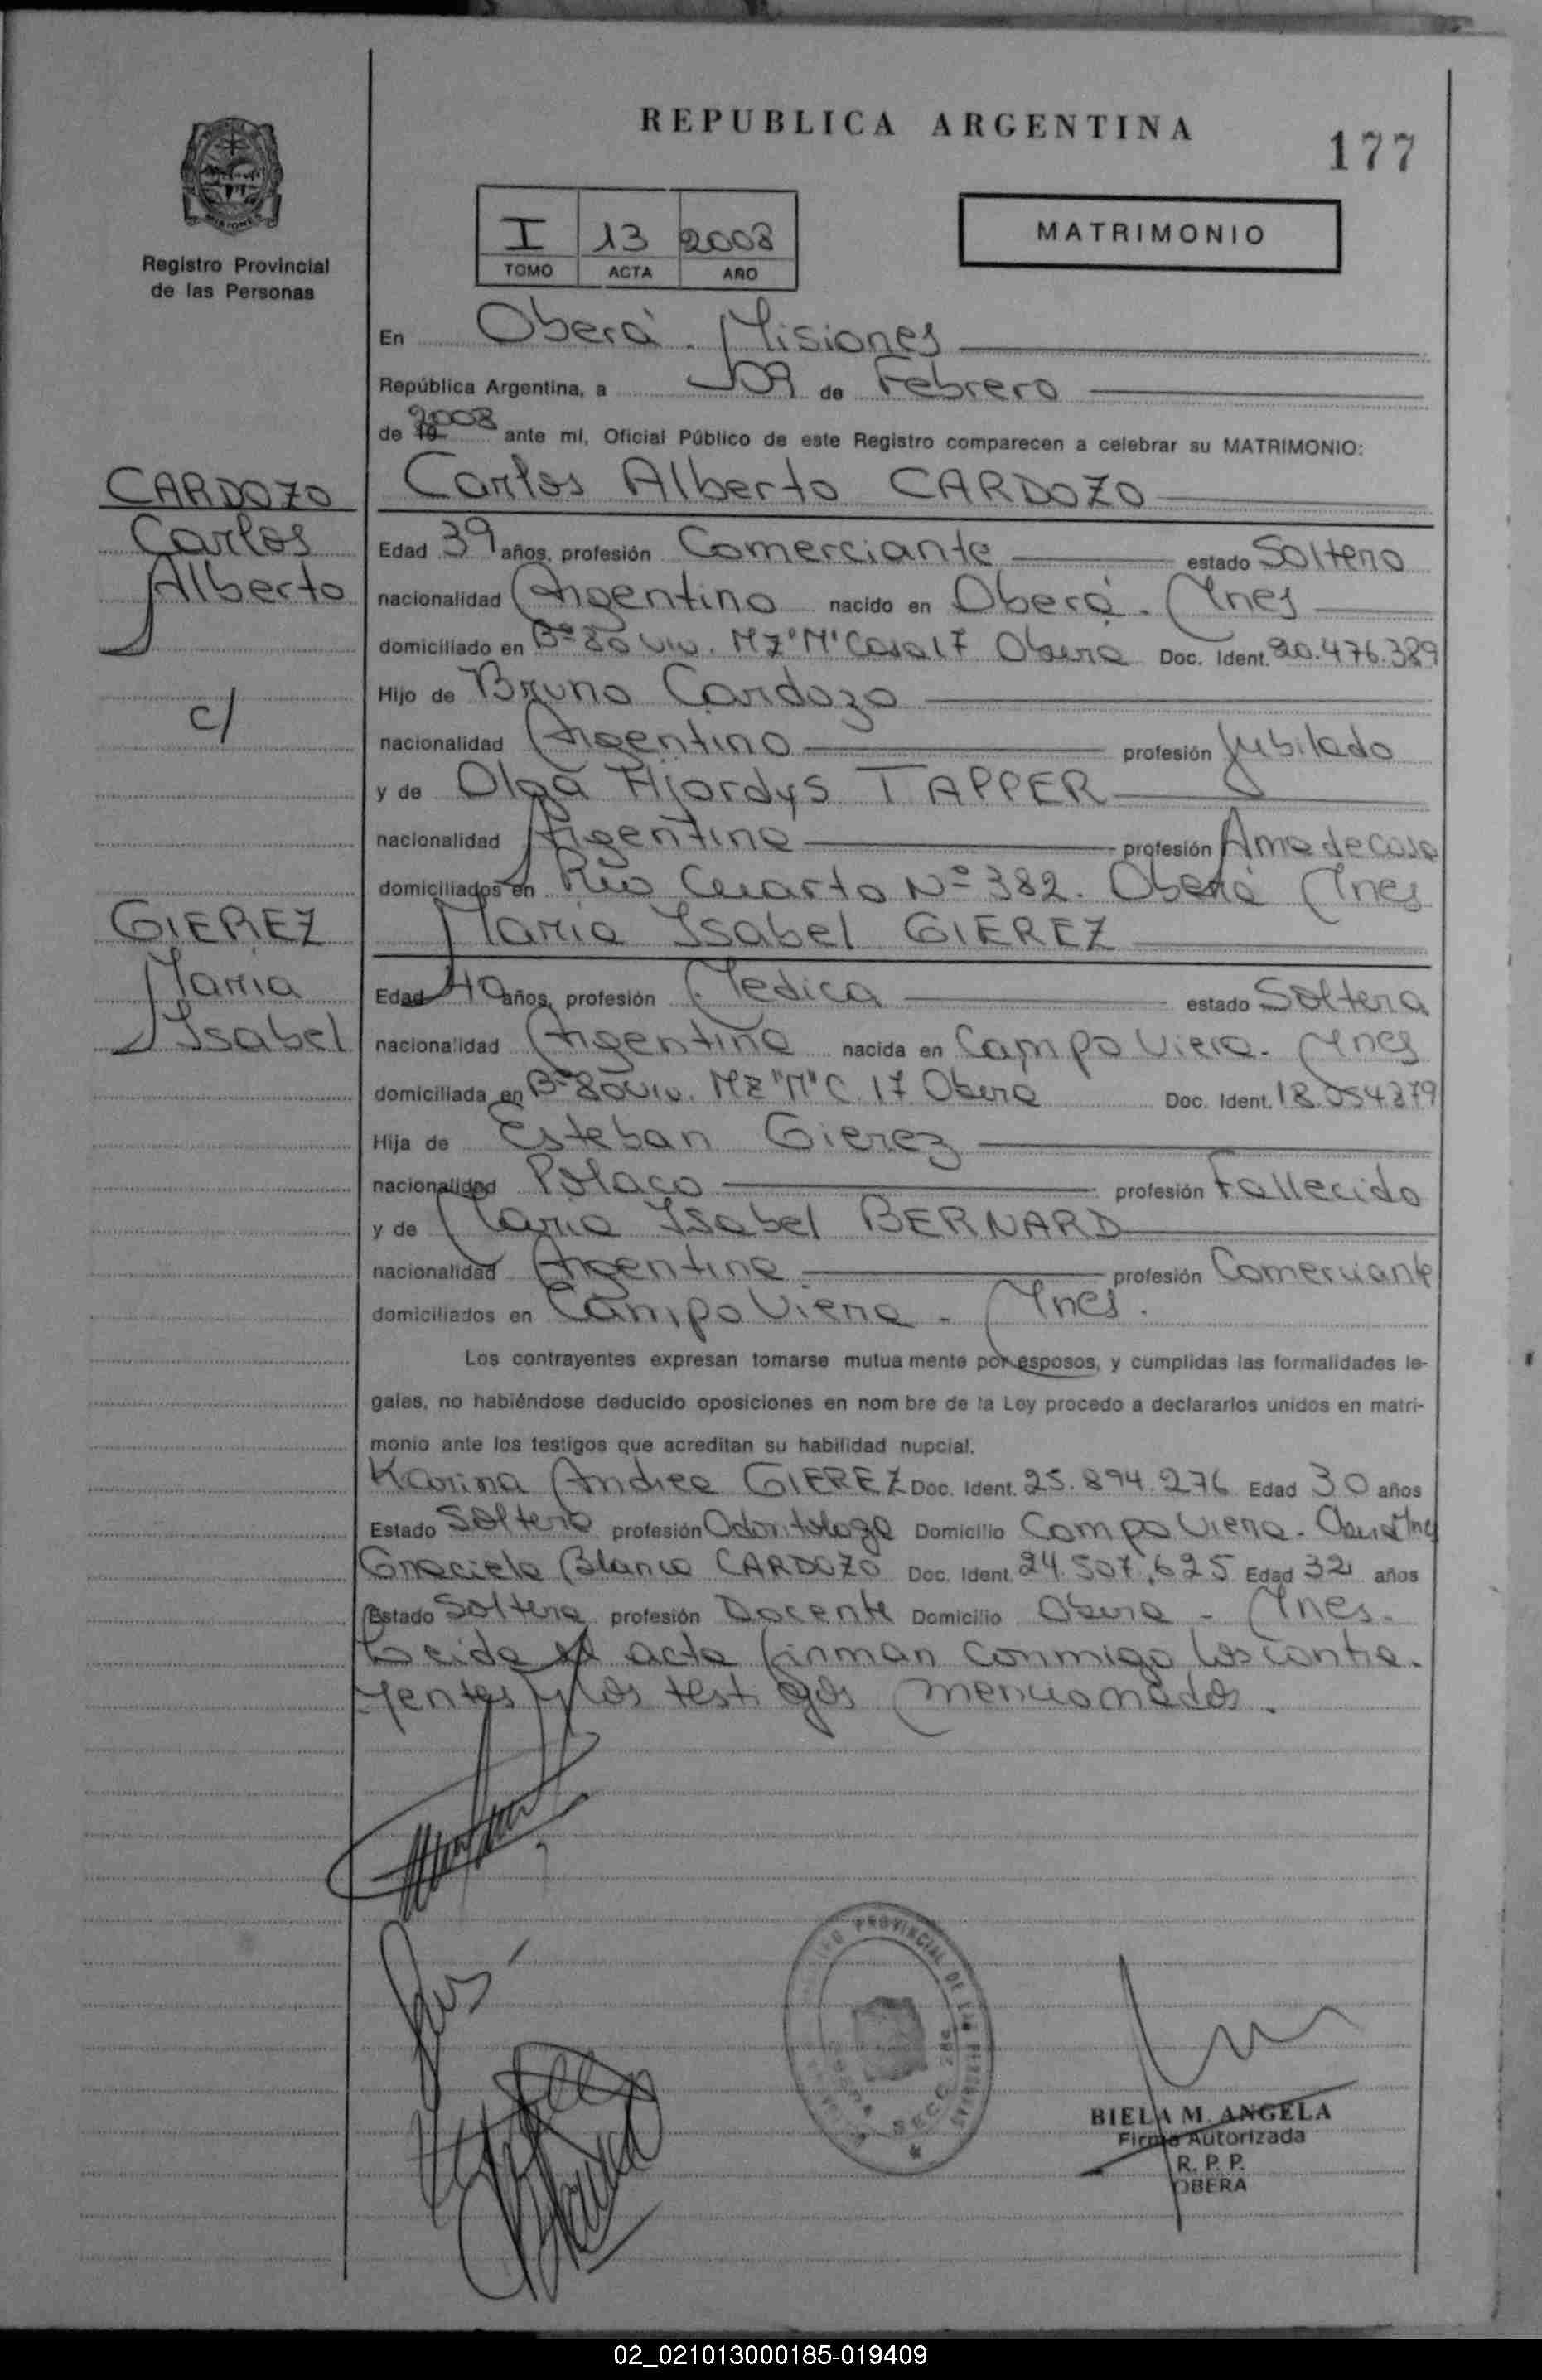 REPUBLICA ARGENTINA
177
I 13 2008
TOMO ACTA AÑO
MATRIMONIO
Registro Provincial
de las Personas
En Oberá - Misiones
República Argentina, a 09 de Febrero
de 19 2008 ante mí, Oficial Público de este Registro comparecen a celebrar su MATRIMONIO:
CARDOZO
Carlos
Alberto
c/
GIEREZ
Maria
Isabel
Carlos Alberto CARDOZO
Edad 39 años, profesión Comerciante estado Soltero
nacionalidad Argentino nacido en Oberá - Mnes
domiciliado en Bº 80 Viv. Mz "M" Casa 17 Oberá Doc. Ident. 20.476.389
Hijo de Bruno Cardozo
nacionalidad Argentino profesión Jubilado
y de Olga Hjordys TAPPER
nacionalidad Argentina profesión Ama de casa
domiciliados en Rio Cuarto Nº 382. Oberá Mnes
Maria Isabel GIEREZ
Edad 40 años, profesión Medica estado Soltera
nacionalidad Argentina nacida en Campo Viera - Mnes
domiciliada en Bº 80 Viv. Mz "M" C. 17 Oberá Doc. Ident. 18.054.379
Hija de Esteban Gierez
nacionalidad Polaco profesión Fallecido
y de Maria Isabel BERNARD
nacionalidad Argentina profesión Comerciante
domiciliados en Campo Viera - Mnes.
Los contrayentes expresan tomarse mutua mente por esposos, y cumplidas las formalidades le-
gales, no habiéndose deducido oposiciones en nom bre de la Ley procedo a declararlos unidos en matri-
monio ante los testigos que acreditan su habilidad nupcial.
Karina Andrea GIEREZ Doc. Ident. 25.894.276 Edad 30 años
Estado Soltera profesión Odontologa Domicilio Campo Viera - Oberá Mnes
Graciela Blanca CARDOZO Doc. Ident. 24.507.625 Edad 32 años
Estado Soltera profesión Docente Domicilio Oberá - Mnes.
Leida el acta firman conmigo los contra-
yentes y los testigos mencionados.
PROVINCIAL DE LAS PERSONAS
SECC
BIELA M. ANGELA
Firma Autorizada
R. P. P.
OBERA
02_021013000185-019409